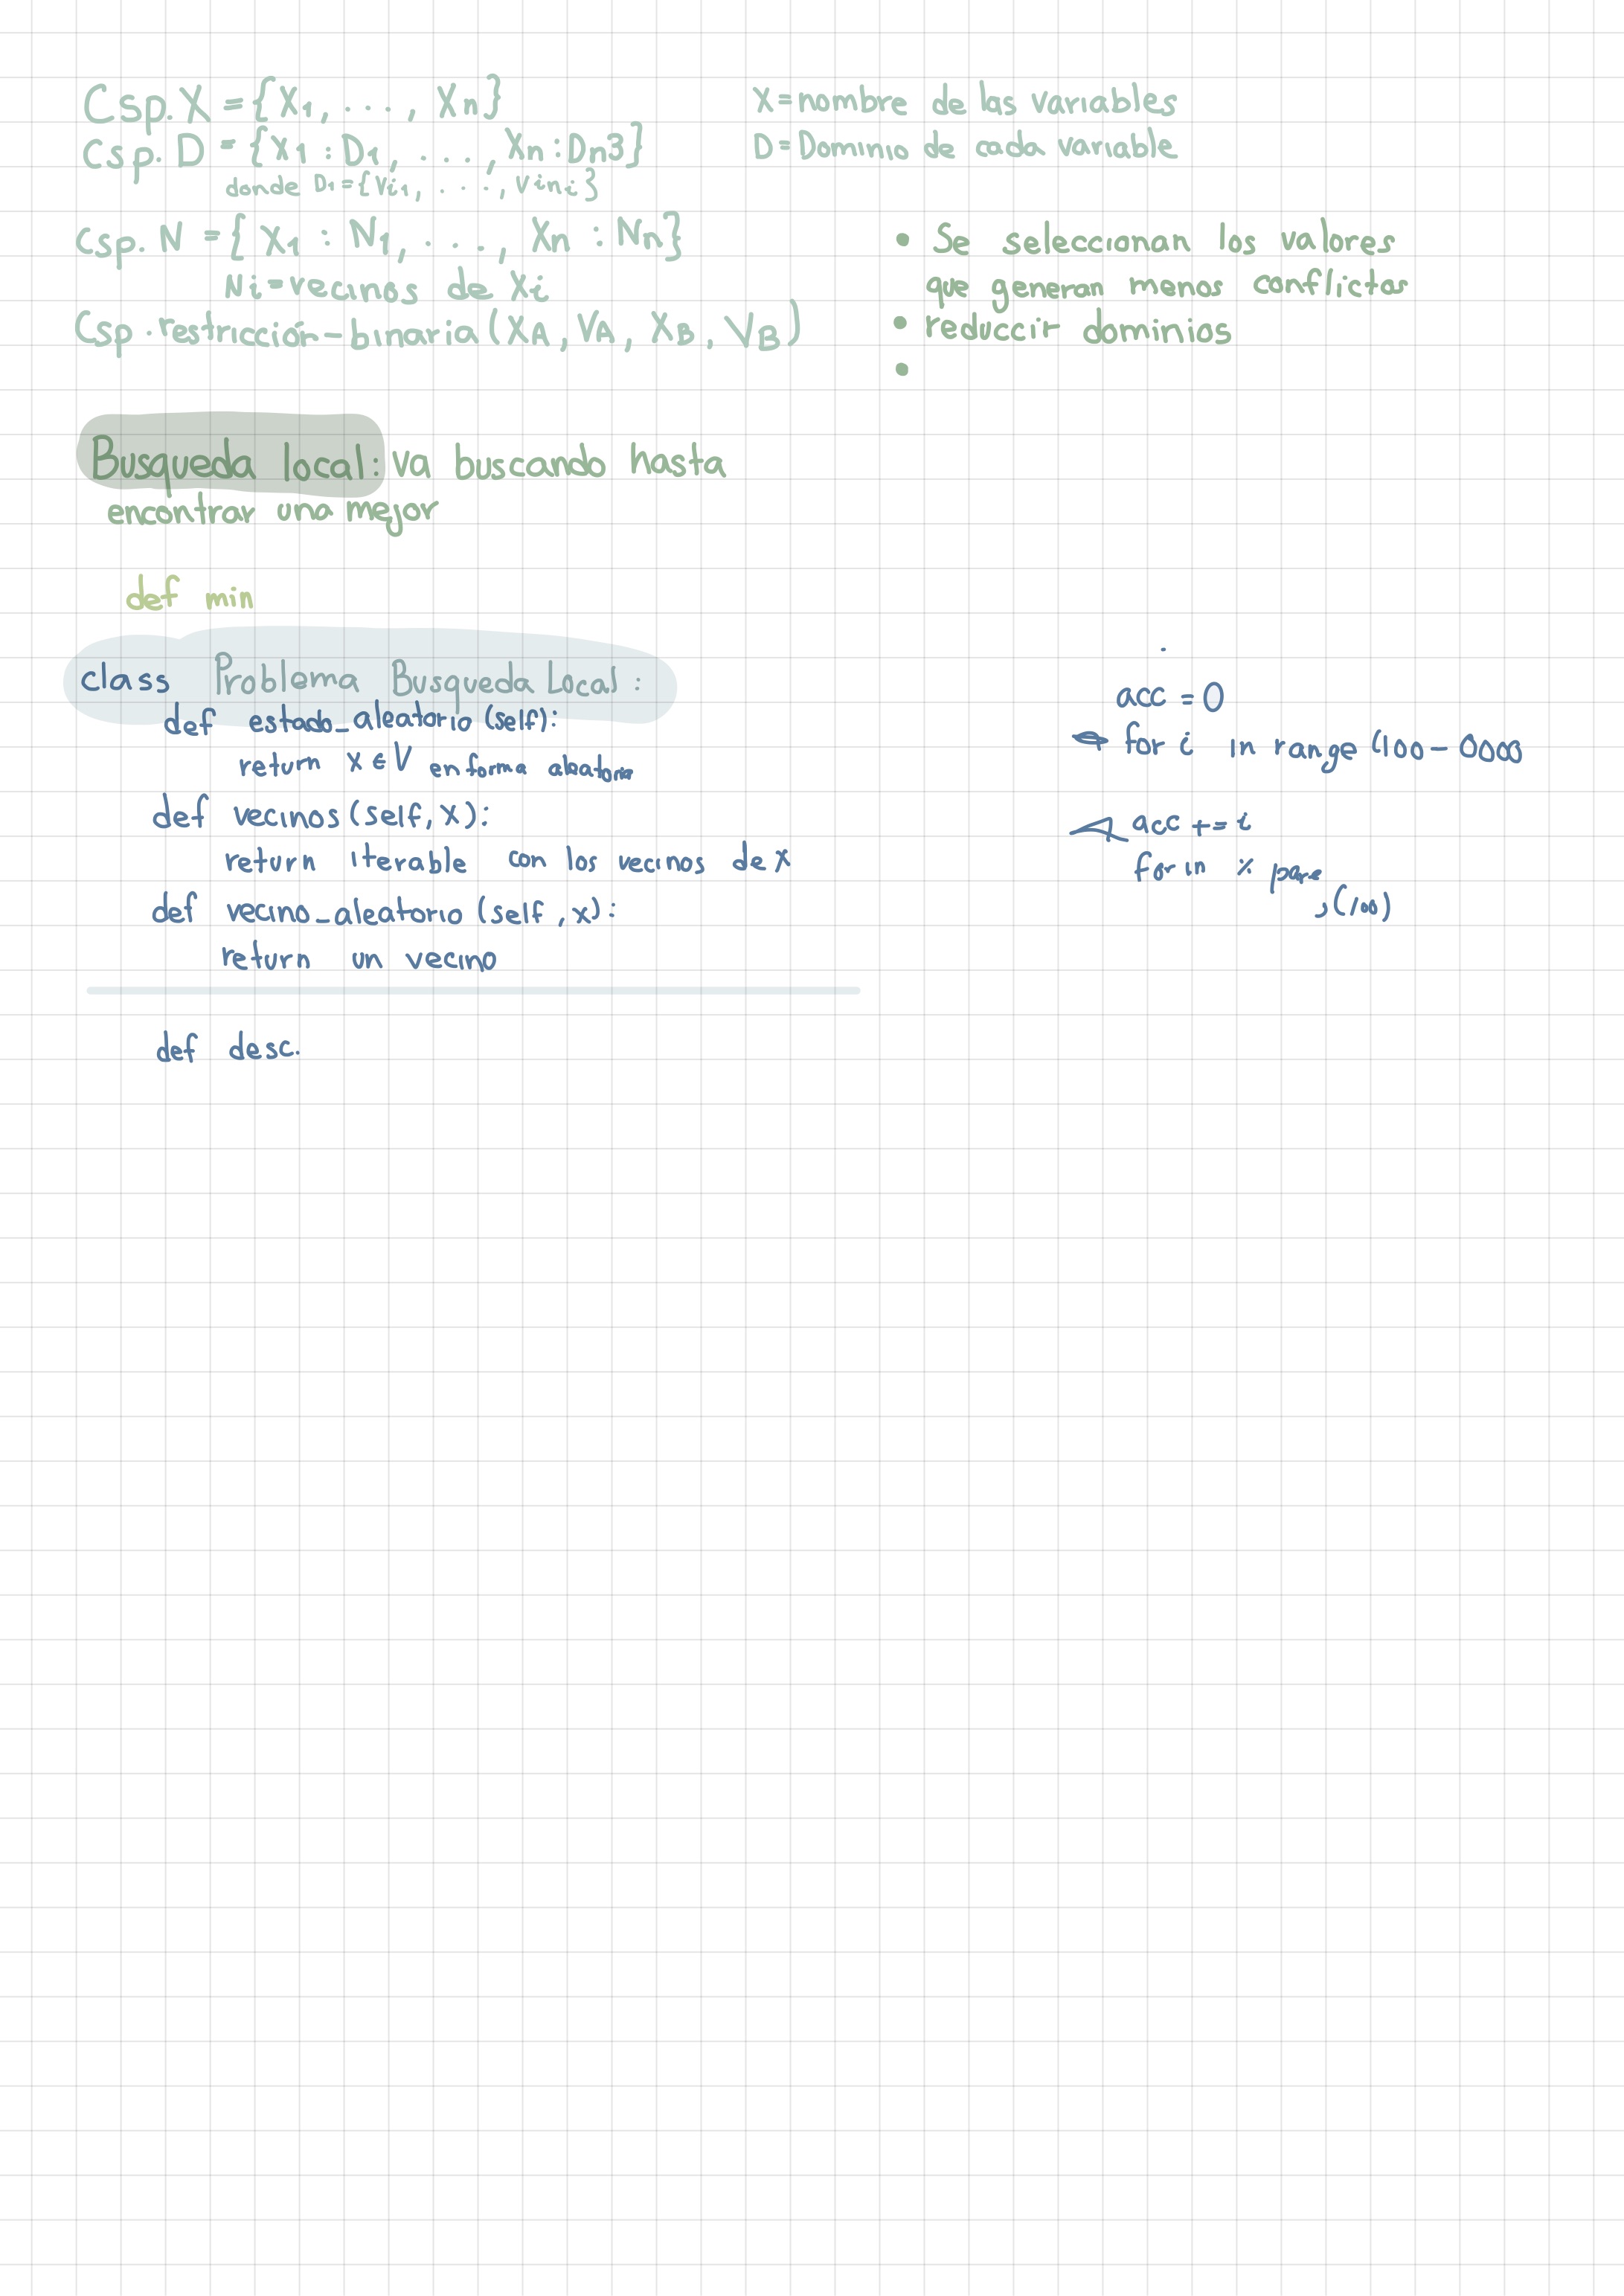 Csp. X = {X1, ..., Xn}
Csp. D = {X1 : D1, ..., Xn : Dn3}
donde D1 = {Vi1, ..., Vini}
Csp. N = { X1 : N1, ..., Xn : Nn}
Ni = vecinos de Xi
Csp. restricción-binaria (XA, VA, XB, VB)
X = nombre de las variables
D = Dominio de cada variable
• Se seleccionan los valores
que generan menos conflictos
• reduccir dominios
•
Busqueda local: va buscando hasta
encontrar una mejor
def min
class Problema Busqueda Local :
def estado_aleatorio (self):
return x ∈ V en forma aleatoria
def vecinos (self, x):
return iterable con los vecinos de x
def vecino_aleatorio (self, x):
return un vecino
def desc.
acc = 0
for i in range (100 - 0000
acc += i
for in % pare
, (100)